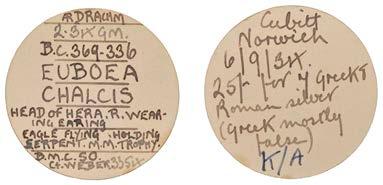 ÆDRACHM
2.3x GM.
B.C.369-336
EUBOEA
CHALCIS
HEAD OF HERA.R.WEAR-
ING EARING
EAGLE FLYING. HOLDING
SERPENT.M.M.TROPHY.
B.M.C.50.
Cf.WEBER 335
Cubitt
Norwich
6/9/3x.
25/- for 7 Greek &
Roman silver
(greek mostly
false)
K/A